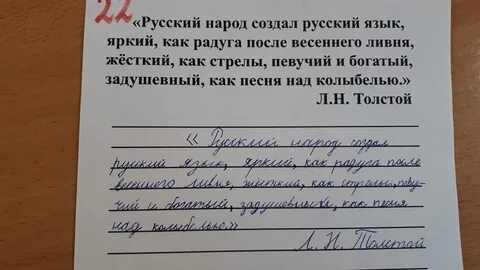 22
«Русский народ создал русский язык,
яркий, как радуга после весеннего ливня,
жёсткий, как стрелы, певучий и богатый,
задушевный, как песня над колыбелью.»
Л.Н. Толстой
«Русский народ создал
русский язык, яркий, как радуга после
весеннего ливня, жёсткий, как стрелы, певу-
чий и богатый, задушевный, как песня
над колыбелью.»
Л. Н. Толстой